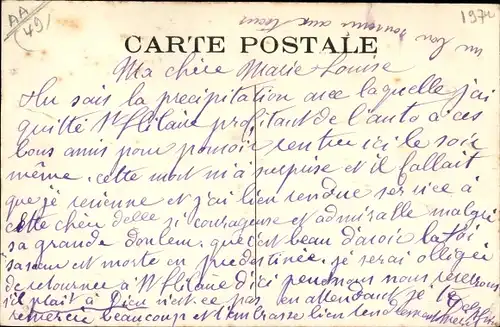 AA
(49)
1974
un bon souvenir aux tiens
CARTE POSTALE
Ma chère Marie-Louise
Tu sais la précipitation avec laquelle j'ai
quitté St Hilaire profitant de l'auto à ces
bons amis pour pouvoir rentrer ici le soir
même. cette mort m'a surprise et il fallait
que je revienne et j'ai bien rendue service à
cette chère si courageuse et admirable malgré
sa grande douleur. que c'est beau d'avoir la foi
sa sœur est morte en prédestinée. je serai obligée
de retourner à St Hilaire d'ici nous nous reverrons
s'il plaît à Dieu n'est ce pas. en attendant je te
remercie beaucoup et t'embrasse bien tendrement